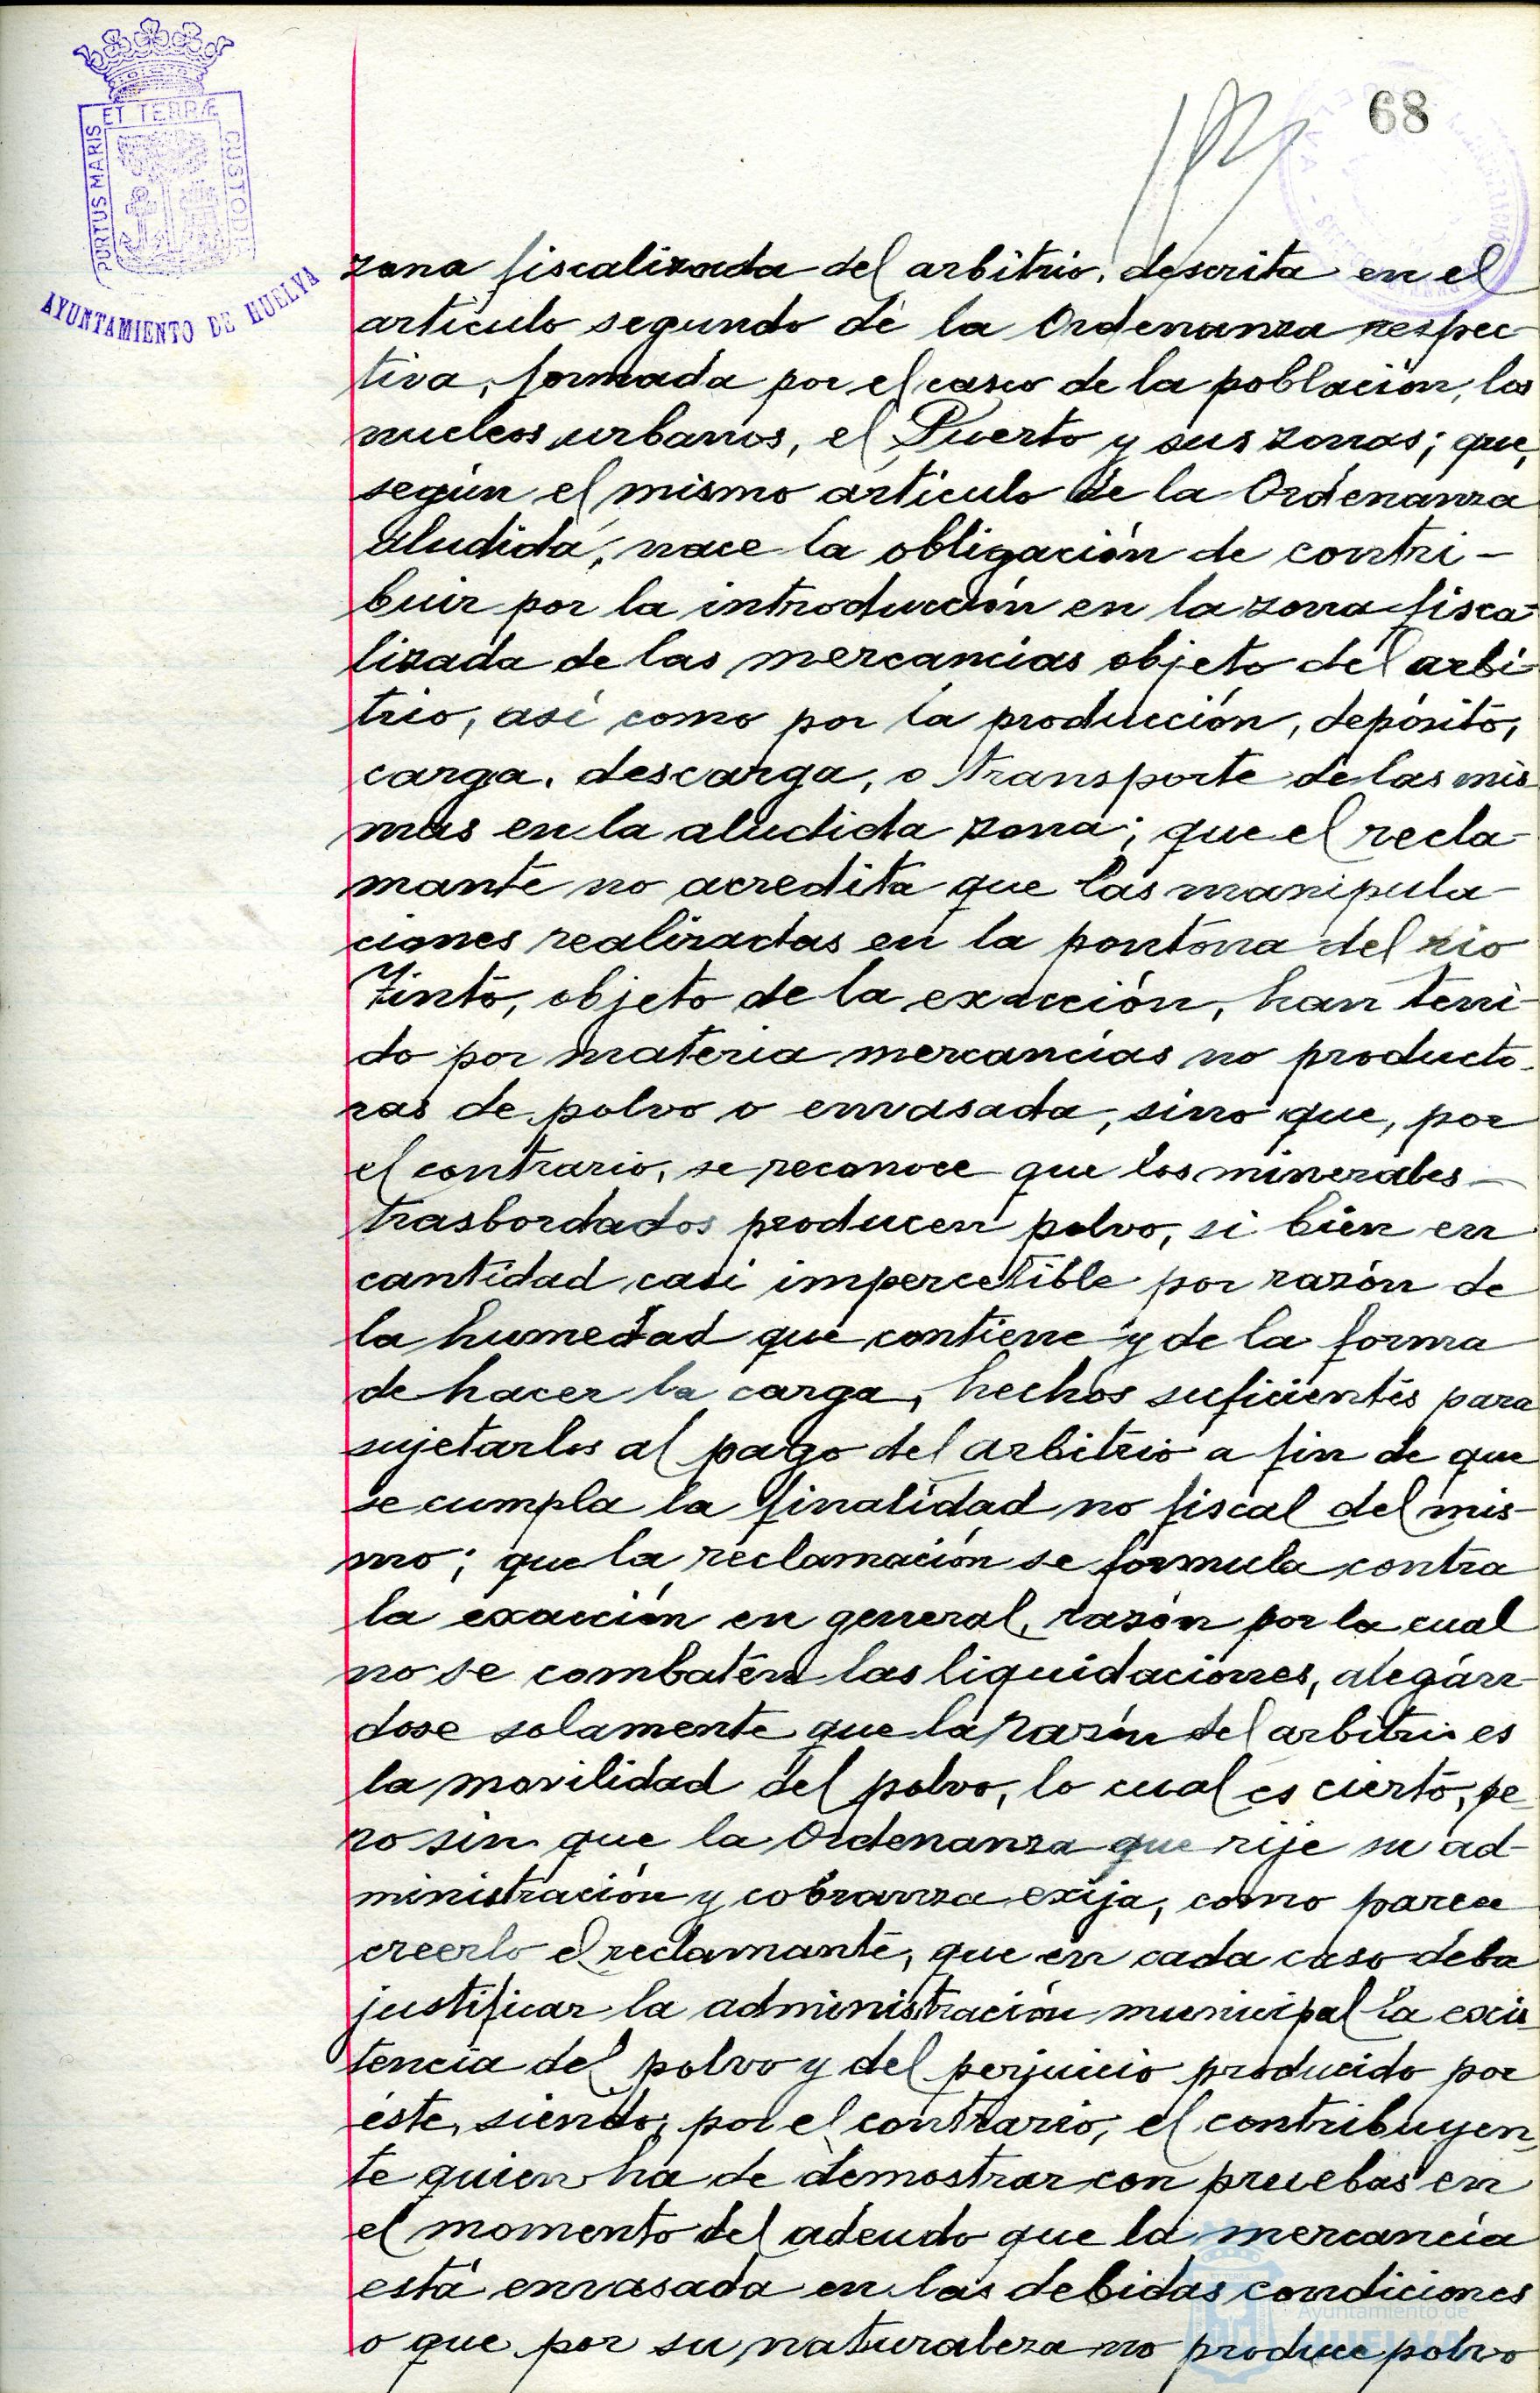 68
ET TERRÆ
PORTUS MARIS
CUSTODI
AYUNTAMIENTO DE HUELVA
zona fiscalizada del arbitrio, descrita en el
artículo segundo de la Ordenanza respec-
tiva, formada por el casco de la población, los
nucleos urbanos, el Puerto y sus zonas; que,
según el mismo artículo de la Ordenanza
aludida, nace la obligación de contri-
buir por la introducción en la zona fisca-
lizada de las mercancias objeto del arbi-
trio, así como por la producción, depósito,
carga, descarga, o transporte de las mis
mas en la aludida zona; que el recla-
mante no acredita que las manipula-
ciones realizadas en la pontona del rio
Tinto, objeto de la exacción, han teni-
do por materia mercancías no producto-
ras de polvo o envasada, sino que, por
el contrario, se reconoce que los minerales
trasbordados producen polvo, si bien en
cantidad casi impercetible por razón de
la humedad que contiene y de la forma
de hacer la carga, hechos suficientes para
sujetarlos al pago del arbitrio a fin de que
se cumpla la finalidad no fiscal del mis-
mo; que la reclamación se formula contra
la exacción en general, razón por la cual
no se combaten las liquidaciones, alegán-
dose solamente que la razón del arbitrio es
la movilidad del polvo, lo cual es cierto, pe-
ro sin que la Ordenanza que rije su ad-
ministración y cobranza exija, como parece
creerlo el reclamante, que en cada caso deba
justificar la administración municipal la exis-
tencia del polvo y del perjuicio producido por
éste, siendo, por el contrario, el contribuyen-
te quien ha de demostrar con pruebas en
el momento del adeudo que la mercancía
está envasada en las debidas condiciones
o que por su naturaleza no produce polvo
Ayuntamiento de
HUELVA